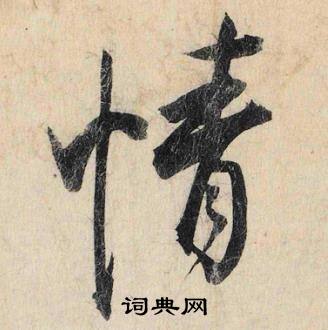 情
词典网